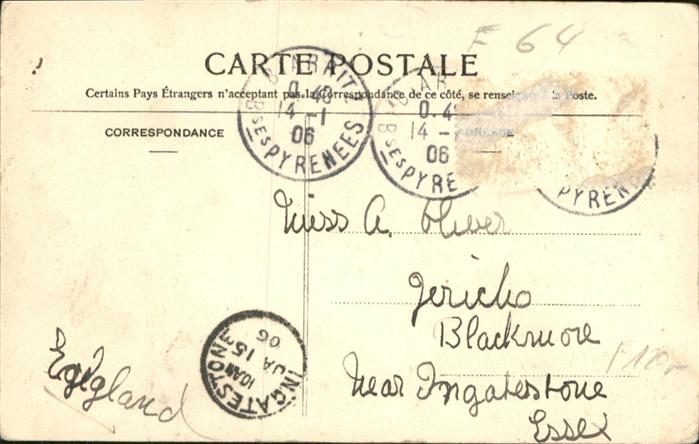 F 64
CARTE POSTALE
Certains Pays Étrangers n'acceptant pas la Correspondance de ce côté, se renseigner à la Poste.
CORRESPONDANCE
ADRESSE
BIARRITZ
14 -1
06
Bses PYRENEES
AR
0.4
14 -
06
Bses PYRE
PYREN
Miss A. Oliver
Jericho
Blackmore
Near Ingatestone
Essex
England
INGATESTONE
10 AM
JA 15
06